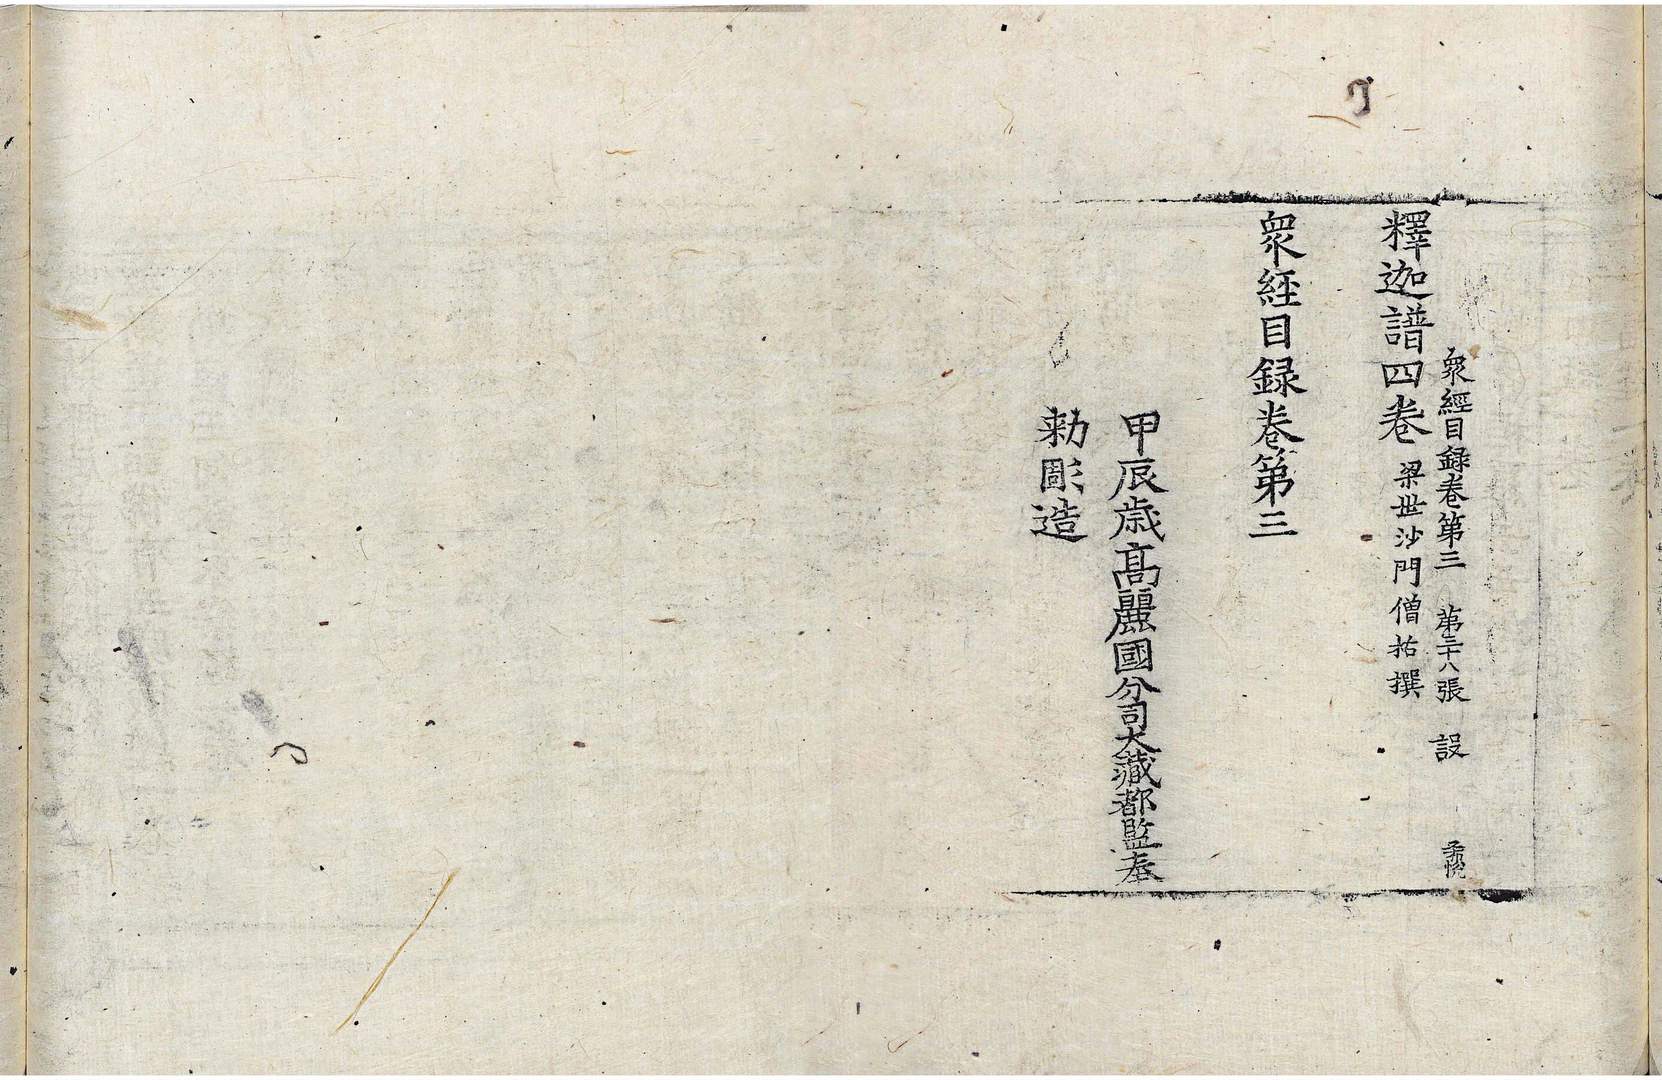 衆經目録卷第三 第三十八張 設 孟悅
釋迦譜四卷 梁世沙門僧祐撰
衆經目録卷第三
甲辰歲髙麗國分司大藏都監奉
勑彫造